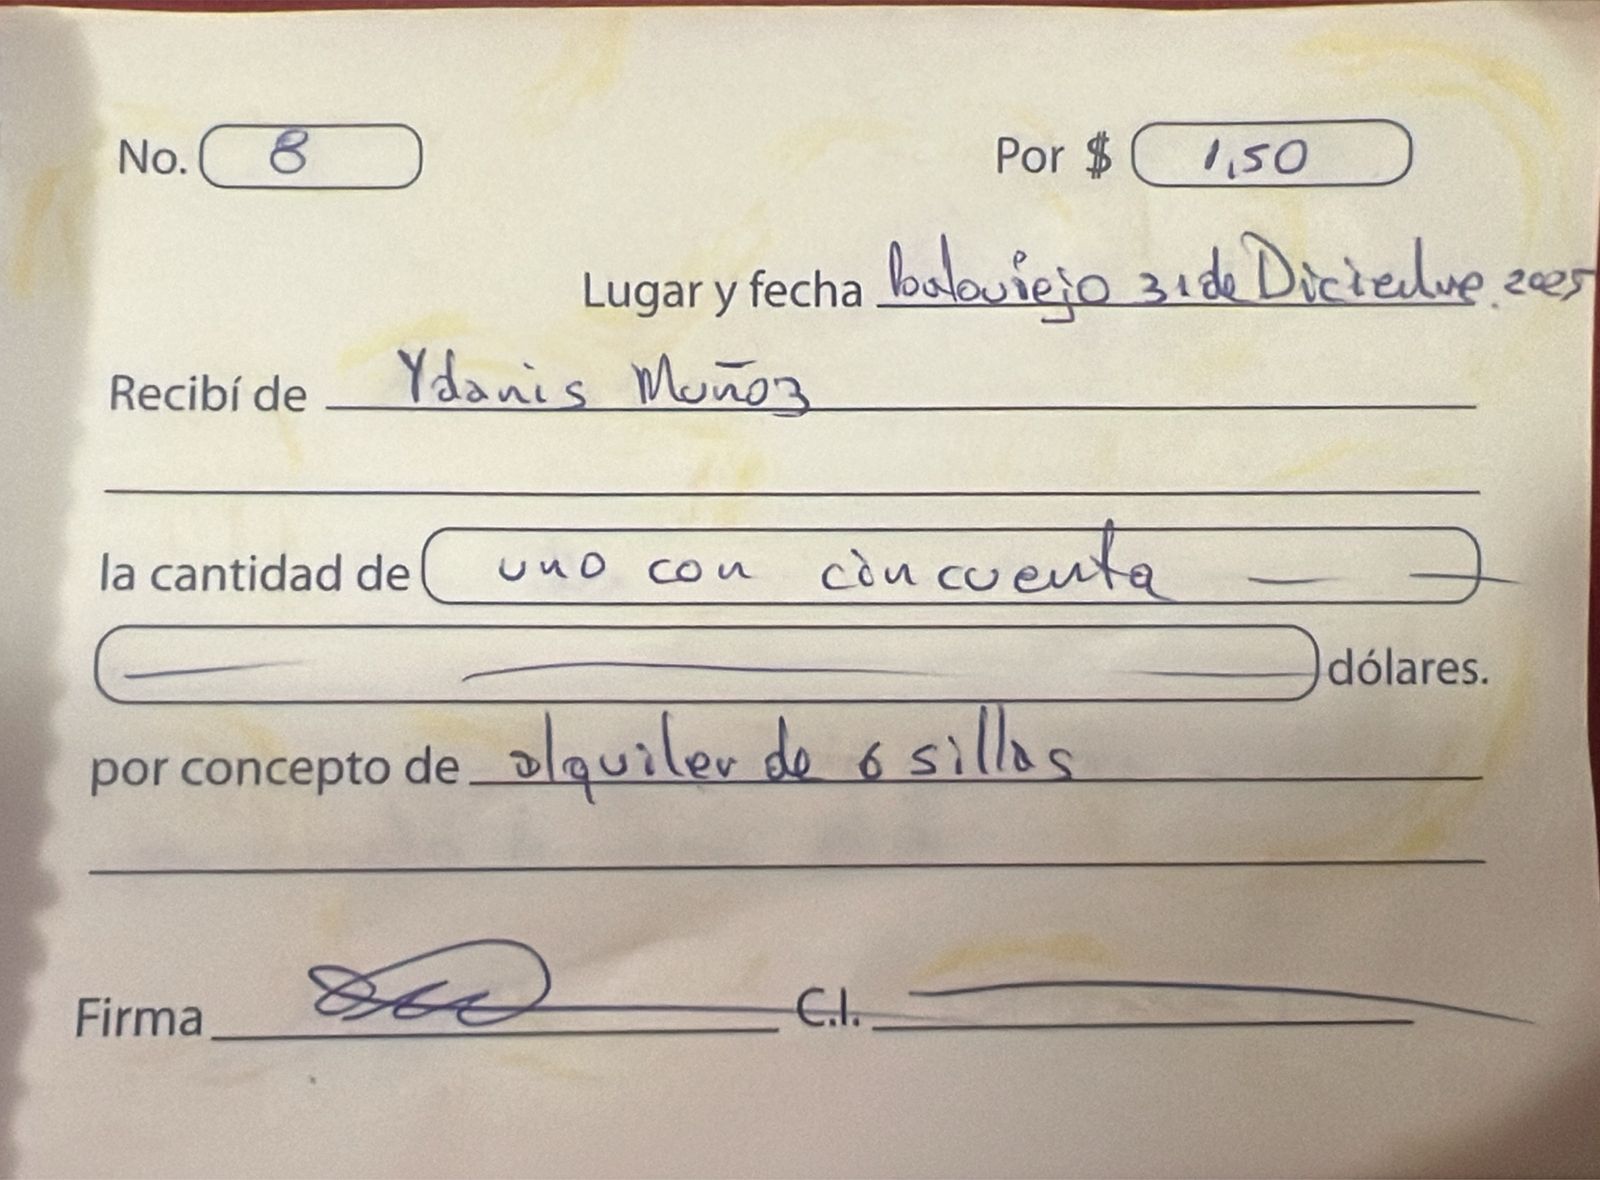 No. 8 Por $ 1,50
Lugar y fecha Portoviejo 31 de Diciembre. 2025
Recibí de Ydanis Muñoz
la cantidad de uno con cincuenta
dólares.
por concepto de alquiler de 6 sillas
Firma C.I.